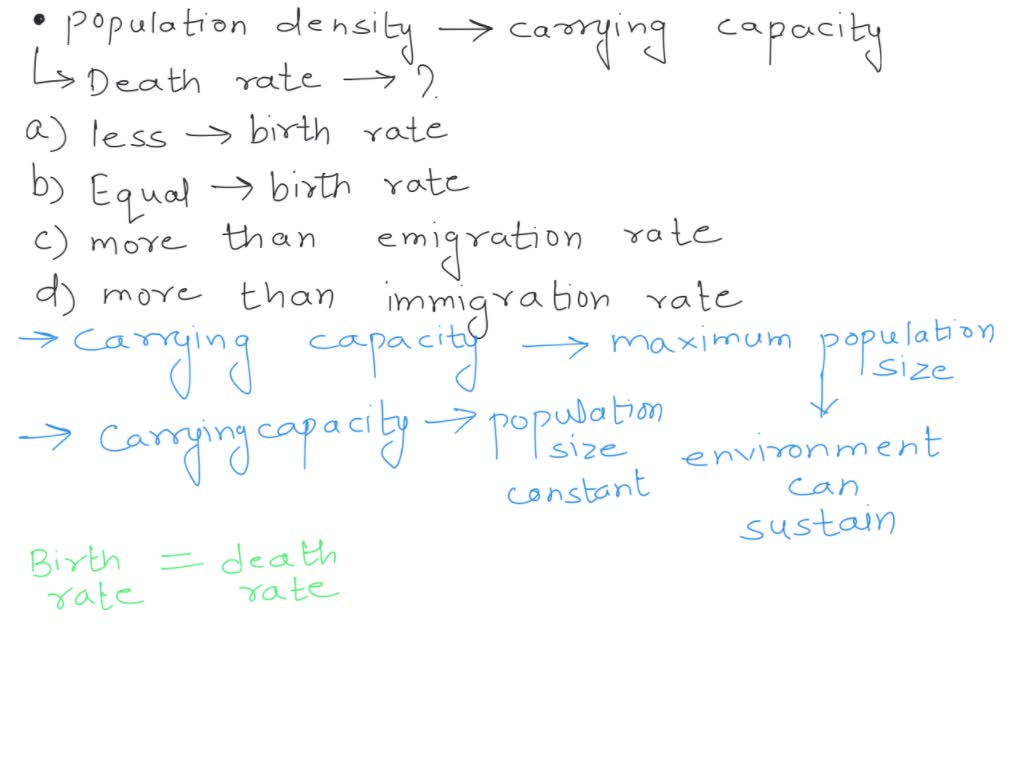 • Population density → carrying capacity
↳ Death rate → ?
a) less → birth rate
b) Equal → birth rate
c) more than emigration rate
d) more than immigration rate
→ carrying capacity → maximum population size
↓
→ carrying capacity → population size constant
environment can sustain
Birth rate = death rate